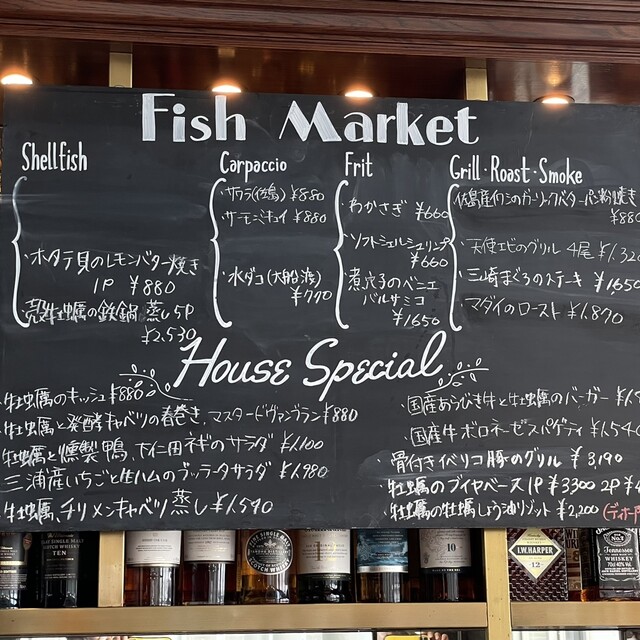 Fish Market
Shellfish
・ホタテ貝のレモンバター焼き
1P ¥880
殻牡蠣の鉄鍋蒸し5P
¥2,530
Carpaccio
・サワラ(佐島) ¥880
・サーモンミキュイ ¥880
・水ダコ(大船渡)
¥770
Frit
・わかさぎ ¥660
・ソフトシェルシュリンプ
¥660
・煮穴子のベニエ
バルサミコ
¥1650
Grill・Roast・Smoke
佐島産イワシのガーリックバターパン粉焼き
¥880
・天使エビのグリル 4尾 ¥1,320
・三崎まぐろのステーキ ¥1650
・マダイのロースト ¥1,870
House Special
牡蠣のキッシュ ¥880
・牡蠣と発酵キャベツの春巻き、マスタードヴァンブラン ¥880
牡蠣と燻製鴨、下仁田ネギのサラダ ¥1,100
三浦産いちごと生ハムのブッラータサラダ ¥1,980
・牡蠣、チリメンキャベツ蒸し ¥1,540
・国産あらびき牛と牡蠣のバーガー
・国産牛ボロネーゼスパゲティ ¥1,540
骨付きイベリコ豚のグリル ¥3190
牡蠣のブイヤベース 1P ¥3300 2P
牡蠣の牡蠣しょう油リゾット ¥2,200
SCOTCH WHISKY
TEN
THE SINGLE MALT
SCOTCH WHISKY
10
I.W.HARPER
12
Tennessee
WHISKEY